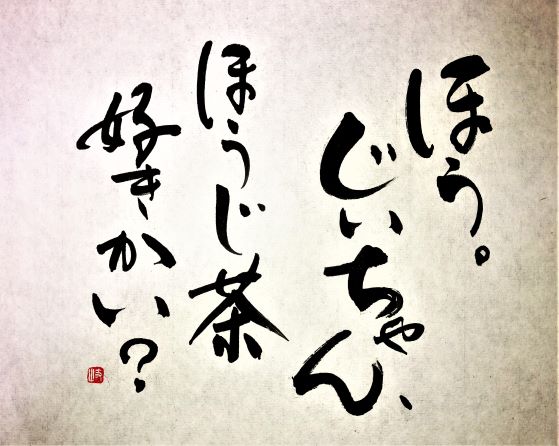 ほう。
じいちゃん、
ほうじ茶
好きかい?